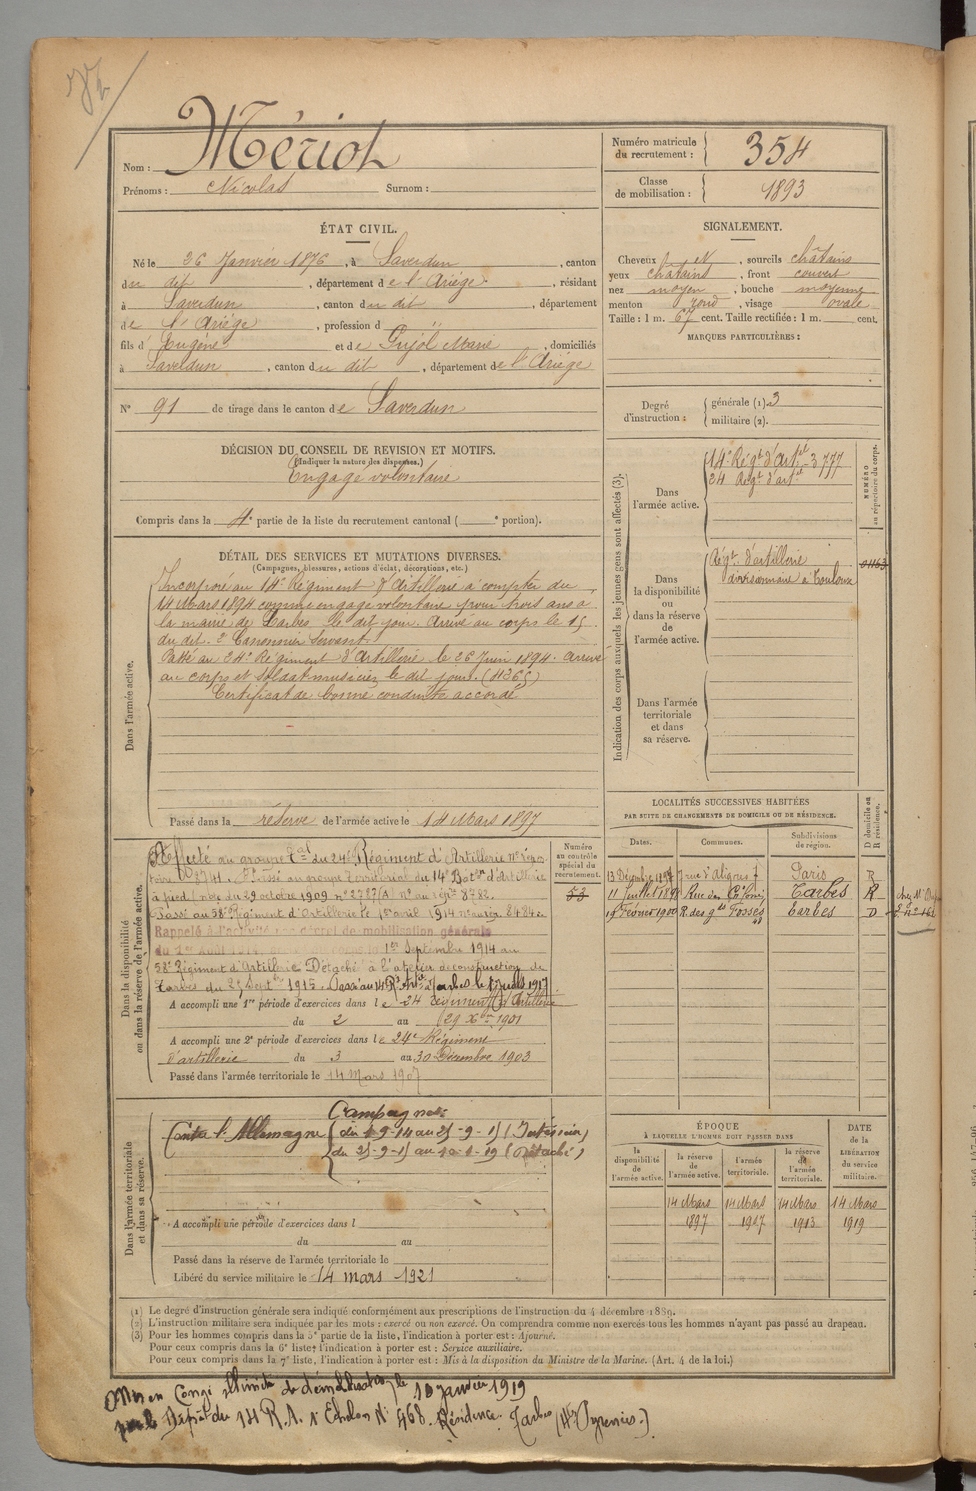 Nom : Mériot
Prénoms : Nicolas Surnom :
Numéro matricule du recrutement : 354
Classe de mobilisation : 1893
ÉTAT CIVIL.
Né le 26 Janvier 1876, à Saverdun, canton
du dit, département de l'Ariége, résidant
à Saverdun, canton du dit, département
de l'Ariége, profession d
fils d'Eugène et de Pujol Marie, domiciliés
à Saverdun, canton du dit, département de l'Ariége
N° 91 de tirage dans le canton de Saverdun
SIGNALEMENT.
Cheveux N, sourcils châtains
yeux châtains, front couvert
nez moyen, bouche moyenne
menton rond, visage ovale
Taille : 1 m. 67 cent. Taille rectifiée : 1 m. cent.
MARQUES PARTICULIÈRES :
Degré d'instruction : générale (1). 3
militaire (2).
DÉCISION DU CONSEIL DE REVISION ET MOTIFS.
(Indiquer la nature des dispenses.)
Engagé volontaire
Compris dans la 4e partie de la liste du recrutement cantonal ( e portion).
DÉTAIL DES SERVICES ET MUTATIONS DIVERSES.
(Campagnes, blessures, actions d'éclat, décorations, etc.)
Dans l'armée active.
Incorporé au 14e Régiment d'Artillerie à compter du
14 Mars 1894 comme engagé volontaire pour trois ans à
la mairie de Tarbes le dit jour. Arrivé au corps le 15
du dit. 2e Canonnier servant.
Passé au 24e Régiment d'Artillerie le 26 Juin 1894. arrivé
au corps et soldat musicien le dit jour. (4365)
Certificat de bonne conduite accordé
Passé dans la réserve de l'armée active le 14 Mars 1897
Indication des corps auxquels les jeunes gens sont affectés (3).
NUMÉRO au répertoire du corps.
Dans l'armée active.
14e Régt d'Artie 3777
24 Régt d'artie
Dans la disponibilité ou dans la réserve de l'armée active.
Régt d'artillerie
divisionnaire à Toulouse 01163
Dans l'armée territoriale et dans sa réserve.
Dans la disponibilité ou dans la réserve de l'armée active.
Numéro au contrôle spécial du recrutement.
53
Affecté au groupe Tal du 24e Régiment d'Artillerie
Passé au groupe territorial du 14e Baton d'Artillerie
à pied, note du 29 octobre 1909
Passé au 58e Régiment d'Artillerie le 1er avril 1914
Rappelé à l'activité décret de mobilisation générale
du 1er Août 1914 1er Septembre 1914 au
58e Régiment d'Artillerie Détaché à l'atelier de construction de
Tarbes du 25 Septbre 1915. Passé au 14e R. Artie Tarbes le 1er Juillet 1917
A accompli une 1re période d'exercices dans le 24 Régiment d'Artillerie
du 2 au 29 Xbre 1901
A accompli une 2e période d'exercices dans le 24e Régiment
d'artillerie du 3 au 30 Décembre 1903
Passé dans l'armée territoriale le 14 Mars 1907
LOCALITÉS SUCCESSIVES HABITÉES
PAR SUITE DE CHANGEMENTS DE DOMICILE OU DE RÉSIDENCE.
Dates. Communes. Subdivisions de région. D domicile ou R résidence.
13 Décembre 1897 7 rue d'Aligre Paris R
11 Juillet 1898 Rue des Tarbes R
19 Février 1900 R. des gds Fossés Tarbes D
Dans l'armée territoriale et dans sa réserve.
Campagnes
Contre l'Allemagne du 1-9-14 au 25-9-15 (Intérieur)
du 25-9-15 au 10-1-19 (Détaché)
A accompli une période d'exercices dans l
du au
Passé dans la réserve de l'armée territoriale le
Libéré du service militaire le 14 mars 1921
ÉPOQUE
À LAQUELLE L'HOMME DOIT PASSER DANS
la disponibilité de l'armée active. la réserve de l'armée active. l'armée territoriale. la réserve de l'armée territoriale.
DATE de la LIBÉRATION du service militaire.
14 Mars 1897 14 Mars 1907 14 Mars 1913 14 Mars 1919
(1) Le degré d'instruction générale sera indiqué conformément aux prescriptions de l'instruction du 4 décembre 1889.
(2) L'instruction militaire sera indiquée par les mots : exercé ou non exercé. On comprendra comme non exercés tous les hommes n'ayant pas passé au drapeau.
(3) Pour les hommes compris dans la 5e partie de la liste, l'indication à porter est : Ajourné.
Pour ceux compris dans la 6e liste, l'indication à porter est : Service auxiliaire.
Pour ceux compris dans la 7e liste, l'indication à porter est : Mis à la disposition du Ministre de la Marine. (Art. 4 de la loi.)
Mis en Congé illimité de démobilisation le 10 janvier 1919
par le Dépôt du 14 R.A. 1er Echelon N° 468. Résidence. Tarbes (Htes Pyrénées.)